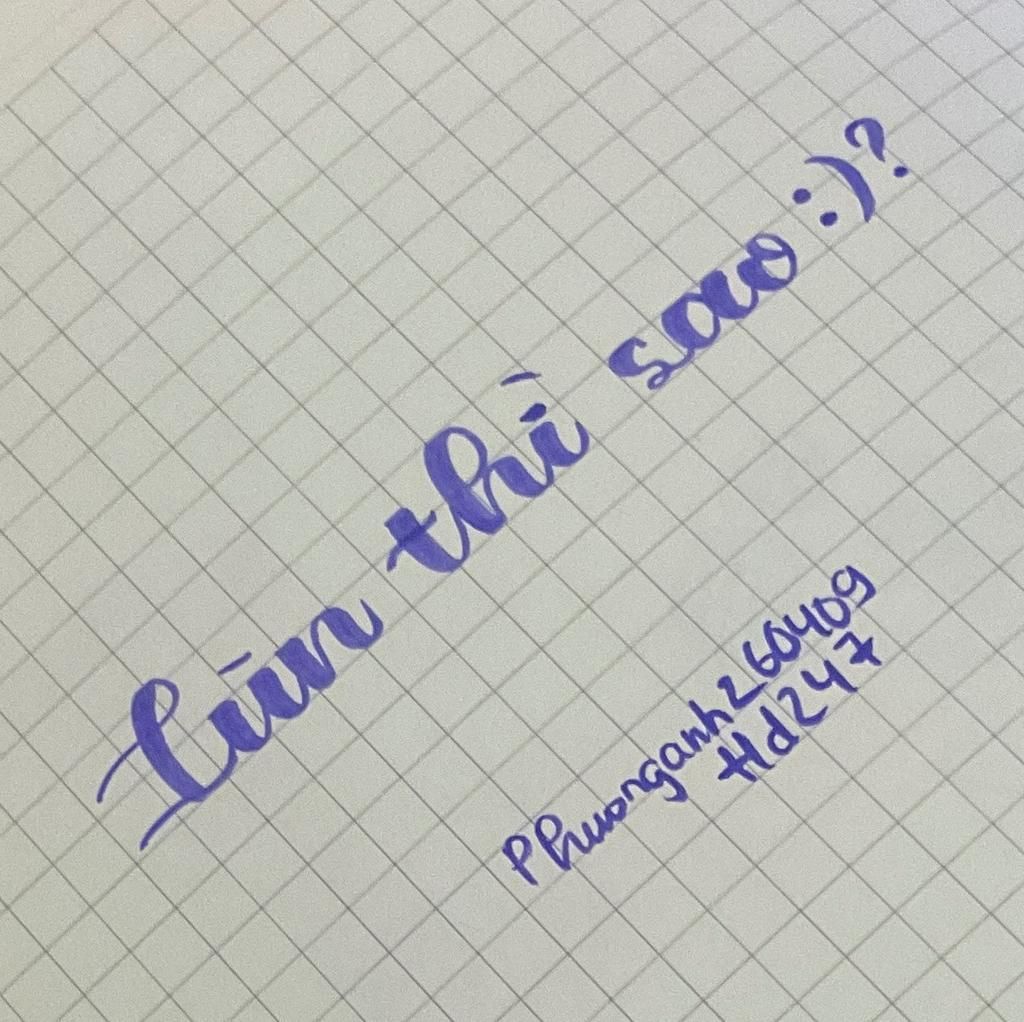 Lùn thì sao :)?
Phuonganh260409
Hd247